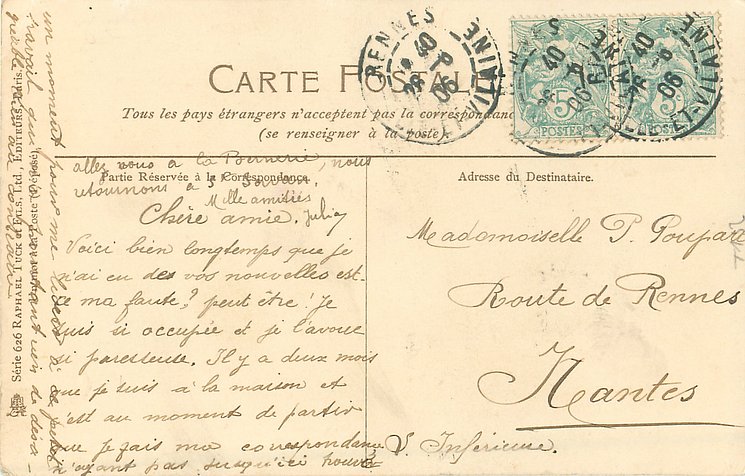 CARTE POSTALE
Tous les pays étrangers n'acceptent pas la correspondance
(se renseigner à la poste).
Partie Réservée à la Correspondance.
Adresse du Destinataire.
RENNES
ILLE-ET-VILAINE
06
5
POSTES
5
POSTES
Chère amie,
Voici bien longtemps que je
n'ai eu des vos nouvelles est-
ce ma faute? peut être! Je
suis si occupée et je l'avoue
si paresseuse. Il y a deux mois
que je suis à la maison et
c'est au moment de partir
que je fais ma correspondance
n'ayant pas jusqu'ici trouvé
un moment pour me
travail qui
allez vous à la Bernerie, nous
retournons à
Mille amitiés
Mademoiselle P. Poupart
Route de Rennes
Nantes
L. Inférieure.
Série 626 RAPHAEL TUCK et FILS, Ltd., EDITEURS, Paris.